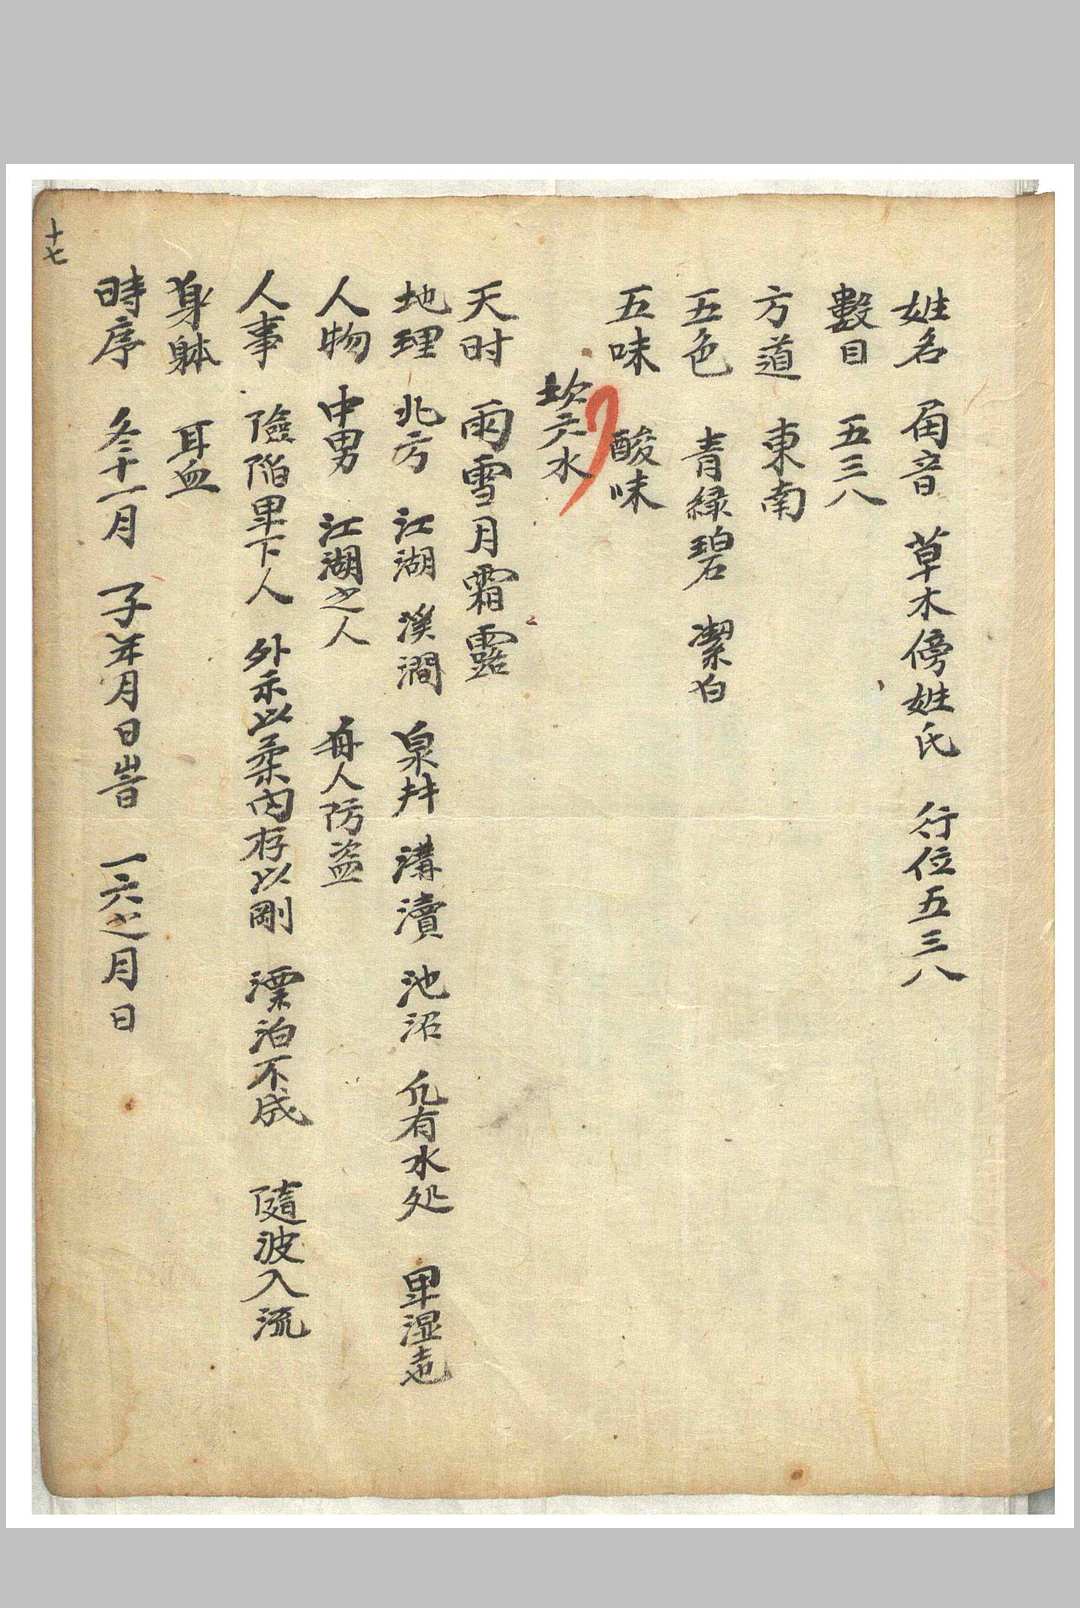 姓名 角音 草木傍姓氏 行位五三八
數目 五三八
方道 東南
五色 青綠碧 潔白
五味 酸味
坎六水
天时 雨雪月霜露
地理 北方 江湖 溪澗 泉井 溝瀆 池沼 凢有水处 卑湿
人物 中男 江湖之人 人防盗
人事 險陷卑下人 外示以柔內存以剛 漂泊不成 隨波入流
身躰 耳血
時序 冬十一月 子年月日旹 一六之月日
十七